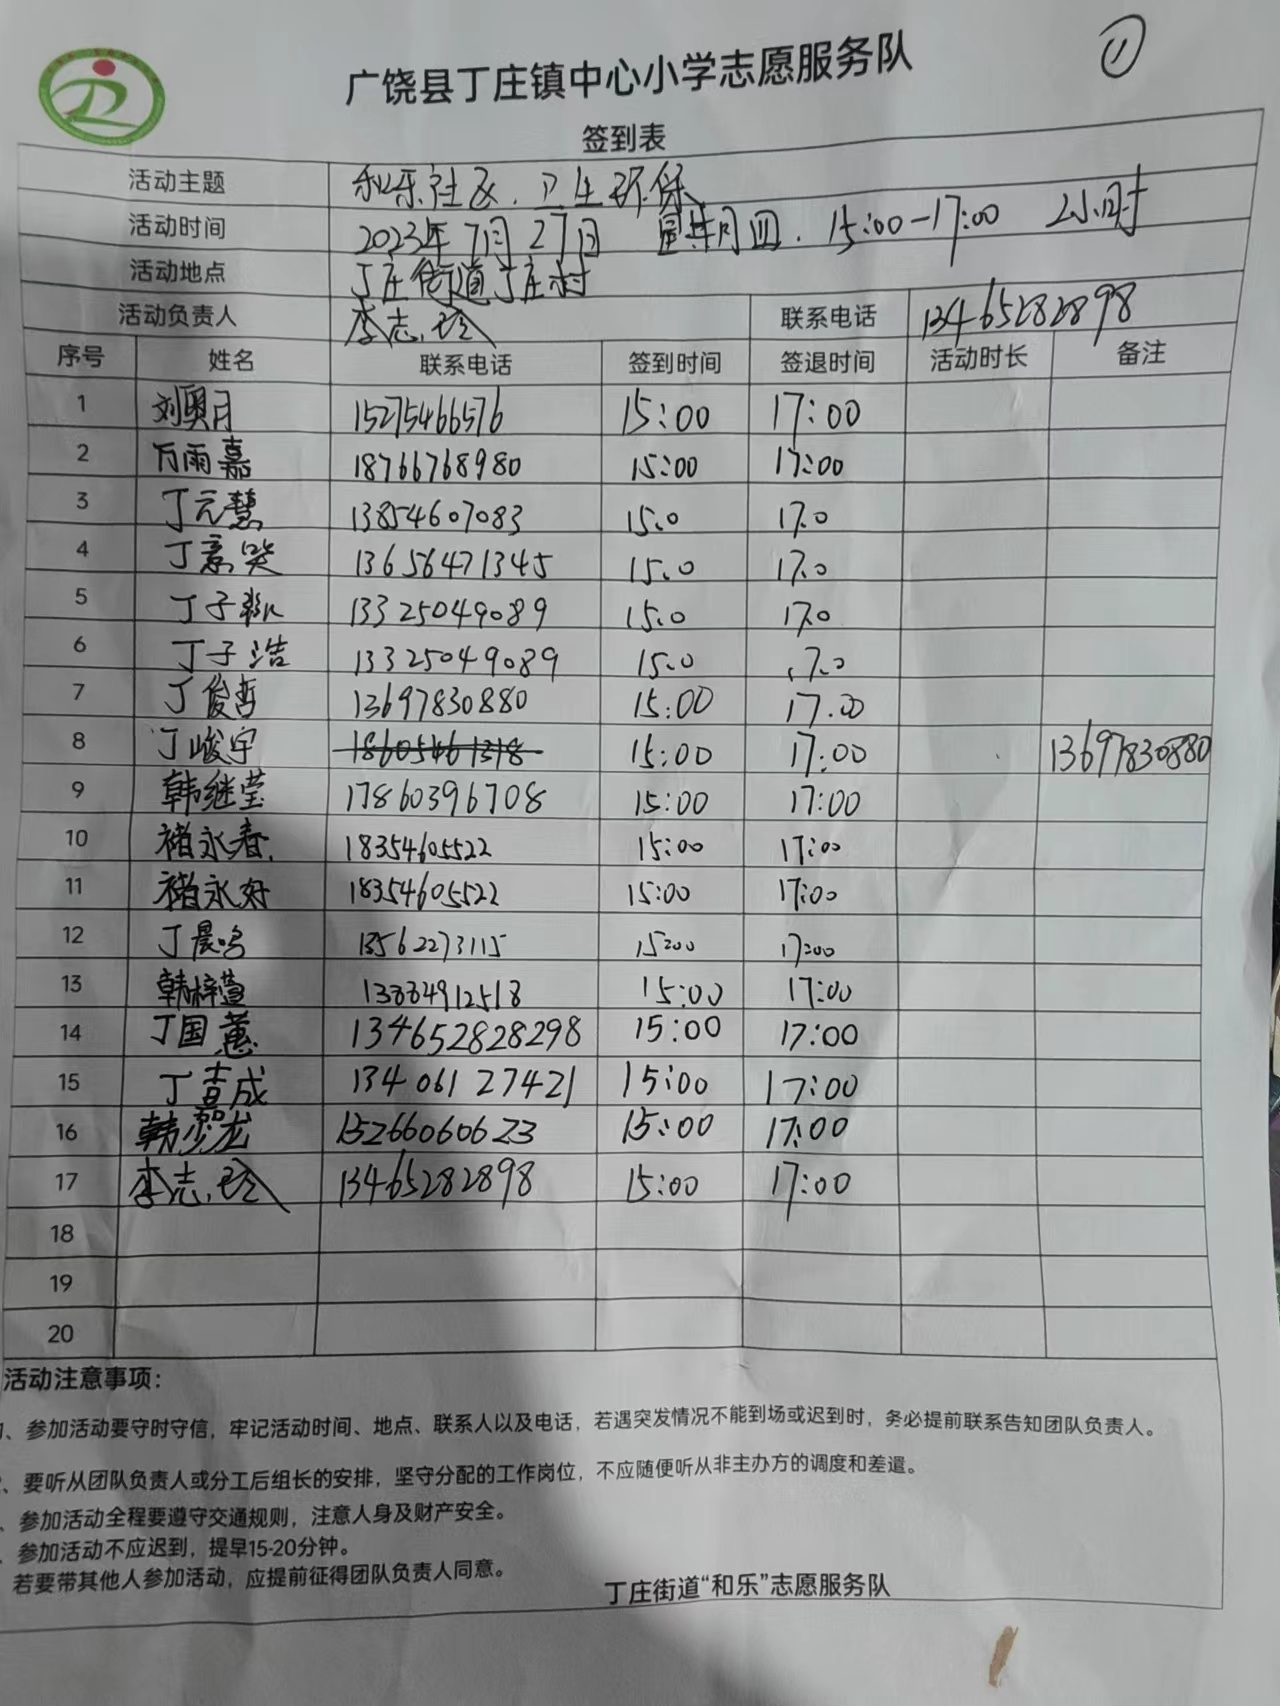 ①
广饶县丁庄镇中心小学志愿服务队
签到表
活动主题 和乐社区、卫生环保
活动时间 2023年7月27日 星期四、15:00-17:00 2小时
活动地点 丁庄街道丁庄村
活动负责人 李志玲 联系电话 13465282898
序号 姓名 联系电话 签到时间 签退时间 活动时长 备注
1 刘奥月 15275466576 15:00 17:00
2 万雨嘉 18766768980 15:00 17:00
3 丁元慧 13854607083 15.0 17.0
4 丁意笑 13656471345 15.0 17.0
5 丁子 13325049089 15.0 17.0
6 丁子浩 13325049089 15.0 17.0
7 丁俊哲 13697830880 15:00 17.00
8 丁峻宇 18605461318 15:00 17:00 13697830880
9 韩继莹 17860396708 15:00 17:00
10 褚永春 18354605522 15:00 17:00
11 褚永好 18354605522 15:00 17:00
12 丁晨鸣 13562273115 15:00 17:00
13 韩梓萱 13884912518 15:00 17:00
14 丁国蕙 134652828298 15:00 17:00
15 丁吉成 13406127421 15:00 17:00
16 韩龙 15266060623 15:00 17:00
17 李志玲 13465282898 15:00 17:00
18
19
20
活动注意事项：
、参加活动要守时守信，牢记活动时间、地点、联系人以及电话，若遇突发情况不能到场或迟到时，务必提前联系告知团队负责人。
、要听从团队负责人或分工后组长的安排，坚守分配的工作岗位，不应随便听从非主办方的调度和差遣。
、参加活动全程要遵守交通规则，注意人身及财产安全。
、参加活动不应迟到，提早15-20分钟。
若要带其他人参加活动，应提前征得团队负责人同意。
丁庄街道“和乐”志愿服务队